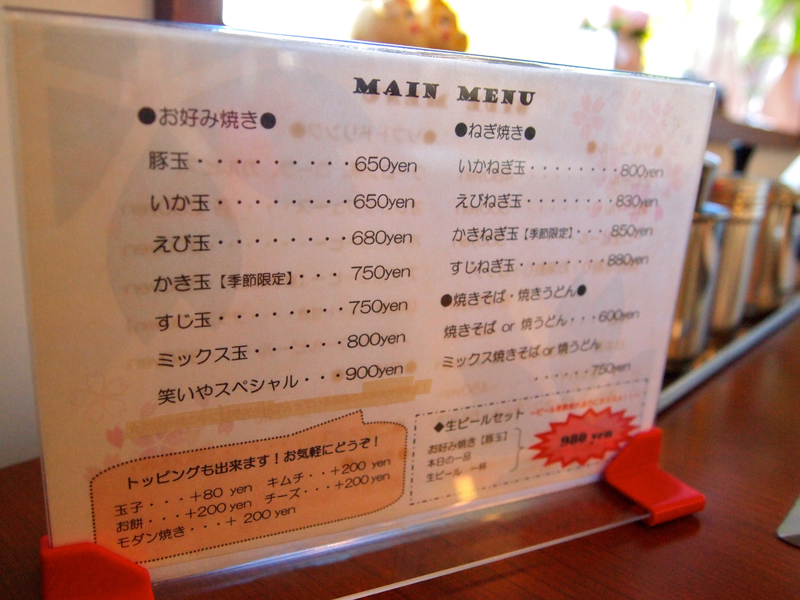 MAIN MENU
●お好み焼き●
豚玉・・・・・・・・・650yen
いか玉・・・・・・・・650yen
えび玉・・・・・・・・680yen
かき玉【季節限定】・・・750yen
すじ玉・・・・・・・・750yen
ミックス玉・・・・・・800yen
笑いやスペシャル・・・900yen
●ねぎ焼き●
いかねぎ玉・・・・・・・・800yen
えびねぎ玉・・・・・・・・830yen
かきねぎ玉【季節限定】・・・850yen
すじねぎ玉・・・・・・・・880yen
●焼きそば・焼きうどん●
焼きそば or 焼うどん・・・600yen
ミックス焼きそば or 焼うどん
・・・・・・750yen
トッピングも出来ます！お気軽にどうぞ！
玉子・・・＋80 yen キムチ・・＋200 yen
お餅・・・＋200 yen チーズ・・・＋200yen
モダン焼き・・・＋ 200yen
◆生ビールセット
お好み焼き【豚玉】
本日の一品
生ビール 一杯
980 yen